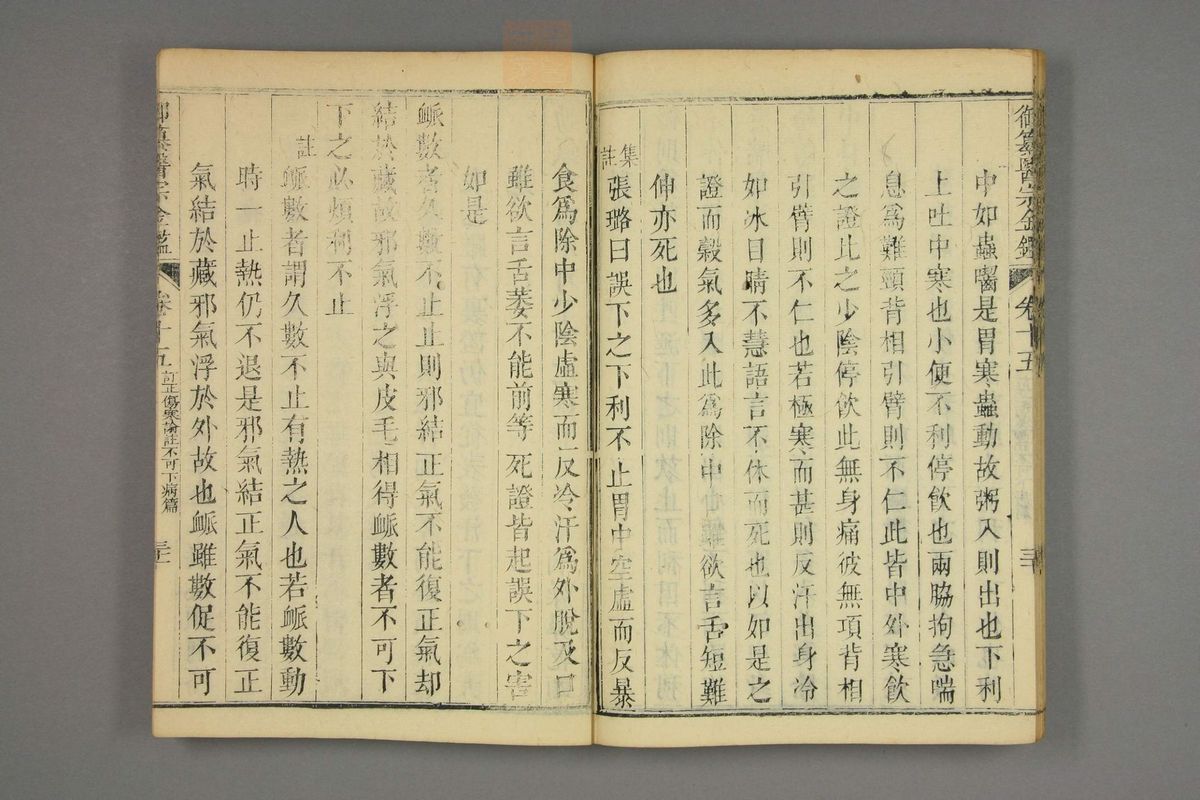 御纂醫宗金鑑 卷十五 三十
中如蟲嚙是胃寒蟲動故粥入則出也下利
上吐中寒也小便不利停飲也兩脇拘急喘
息爲難頸背相引臂則不仁此皆中外寒飲
之證比之少陰停飲此無身痛彼無項背相
引臂則不仁也若極寒而甚則反汗出身冷
如冰目睛不慧語言不休而死也以如是之
證而穀氣多入此爲除中心雖欲言舌短難
伸亦死也
集註
張璐曰誤下之下利不止胃中空虛而反暴
食爲除中少陰虛寒而反冷汗爲外脫及口
雖欲言舌萎不能前等死證皆起誤下之害
如是
衇數者久數不止止則邪結正氣不能復正氣却
結於藏故邪氣浮之與皮毛相得衇數者不可下
下之必煩利不止
註
衇數者謂久數不止有熱之人也若衇數動
時一止熱仍不退是邪氣結正氣不能復正
氣結於藏邪氣浮於外故也衇雖數促不可
御纂醫宗金鑑 卷十五 訂正傷寒論註不可下病篇 三十一